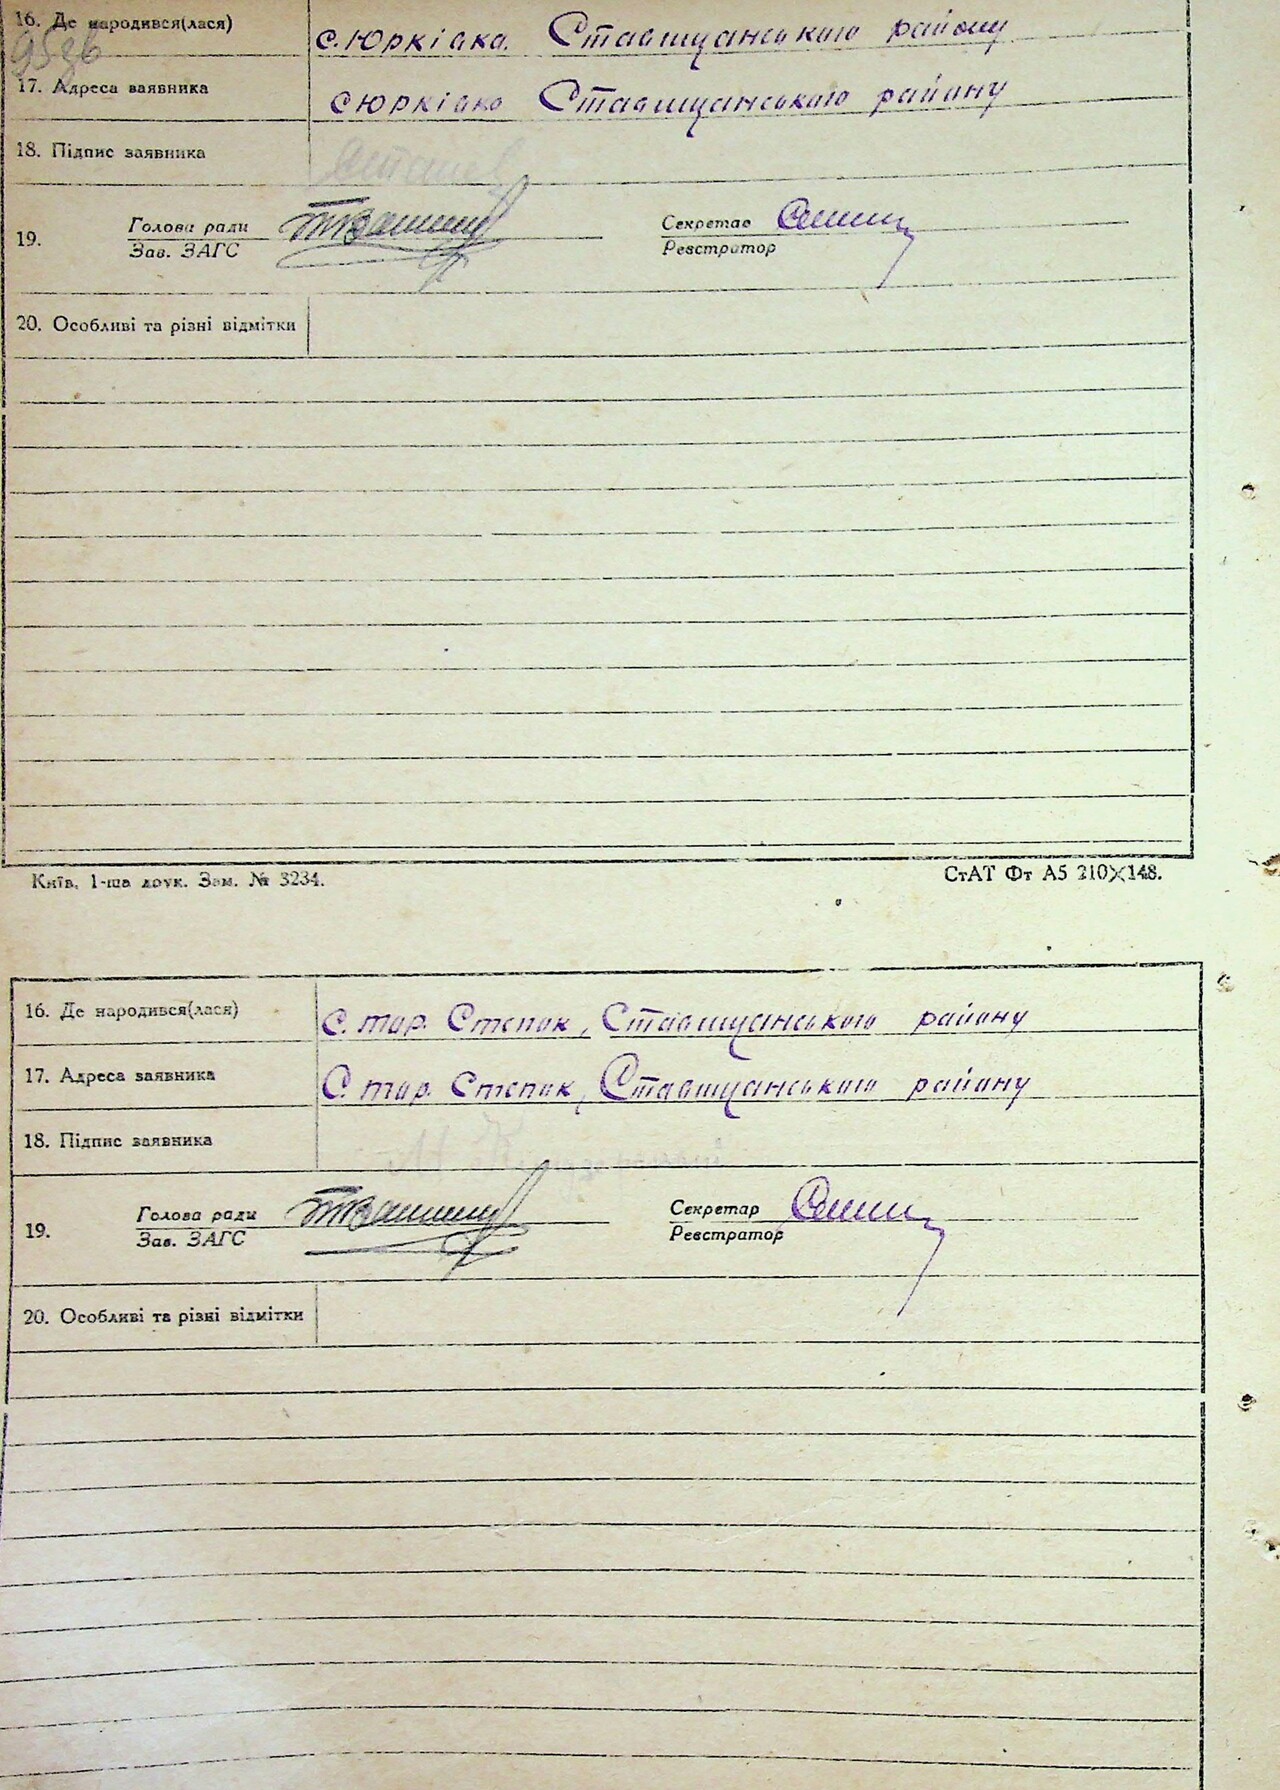 16. Де народився(лася) с. Юрківка. Ставищанського району
17. Адреса заявника с Юрківка Ставищанського району
18. Підпис заявника
19. Голова ради Секретар
Зав. ЗАГС Реєстратор
20. Особливі та різні відмітки
Київ, 1-ша друк. Зам. № 3234. СтАТ Фт А5 210×148.
16. Де народився(лася) С. тор. Степок, Ставищанського району
17. Адреса заявника С. тор. Степок, Ставищанського району
18. Підпис заявника
19. Голова ради Секретар
Зав. ЗАГС Реєстратор
20. Особливі та різні відмітки